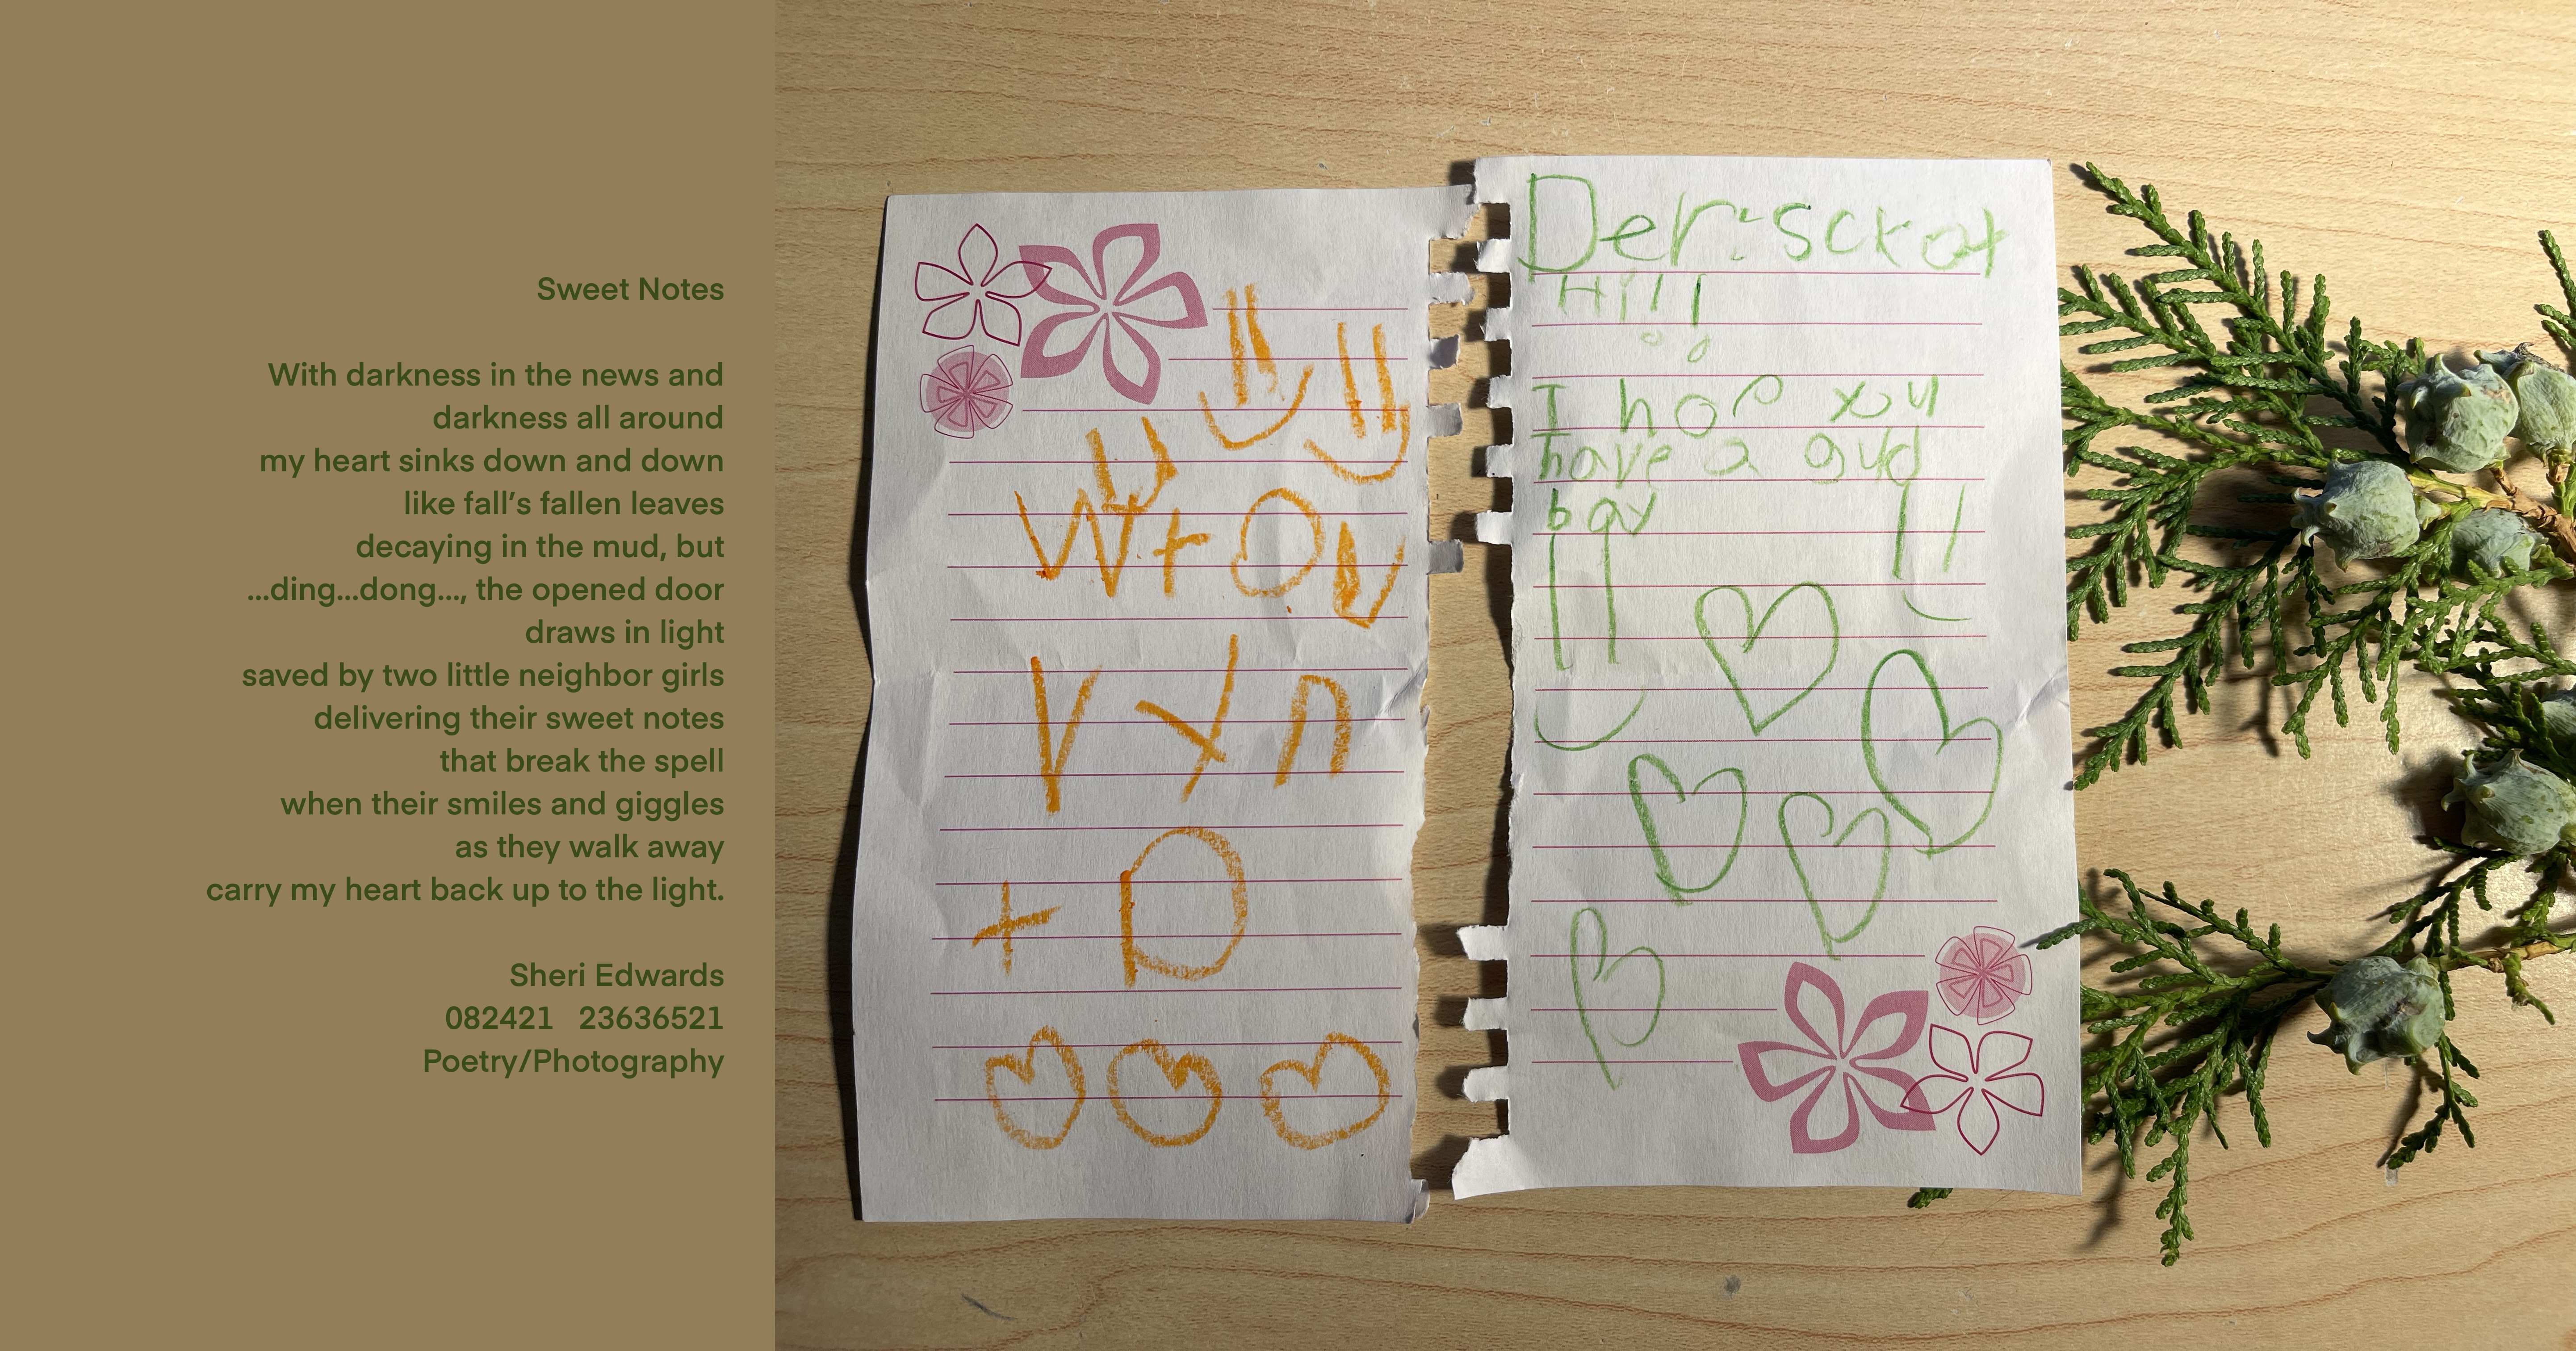 Sweet Notes
With darkness in the news and
darkness all around
my heart sinks down and down
like fall’s fallen leaves
decaying in the mud, but
...ding...dong..., the opened door
draws in light
saved by two little neighbor girls
delivering their sweet notes
that break the spell
when their smiles and giggles
as they walk away
carry my heart back up to the light.
Sheri Edwards
082421 23636521
Poetry/Photography
Hi!!
I hop you
have a gud
bay